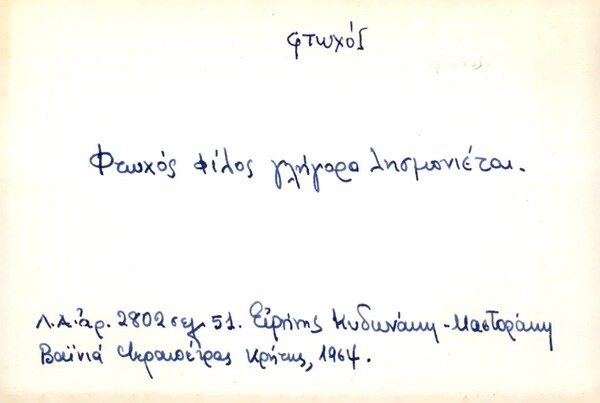 φτωχός
Φτωχός φίλος γλήγορα λησμονιέται.
Λ.Α. ἀρ. 2802 σελ. 51. Εἰρήνης Κυδωνάκη - Μαστοράκη
Βαϊνιά Ἱεραπέτρας Κρήτης, 1964.